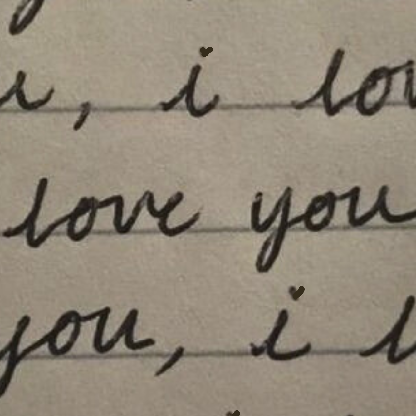 u, i lov
love you
you, i l